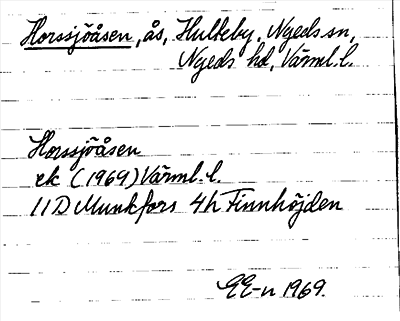 Horssjöåsen, ås, Hulteby, Nyeds sn,
Nyeds hd, Värml. l.
Horssjöåsen
ek (1969) Värml. l.
11D Munkfors 4h Finnhöjden
EE-n 1969.